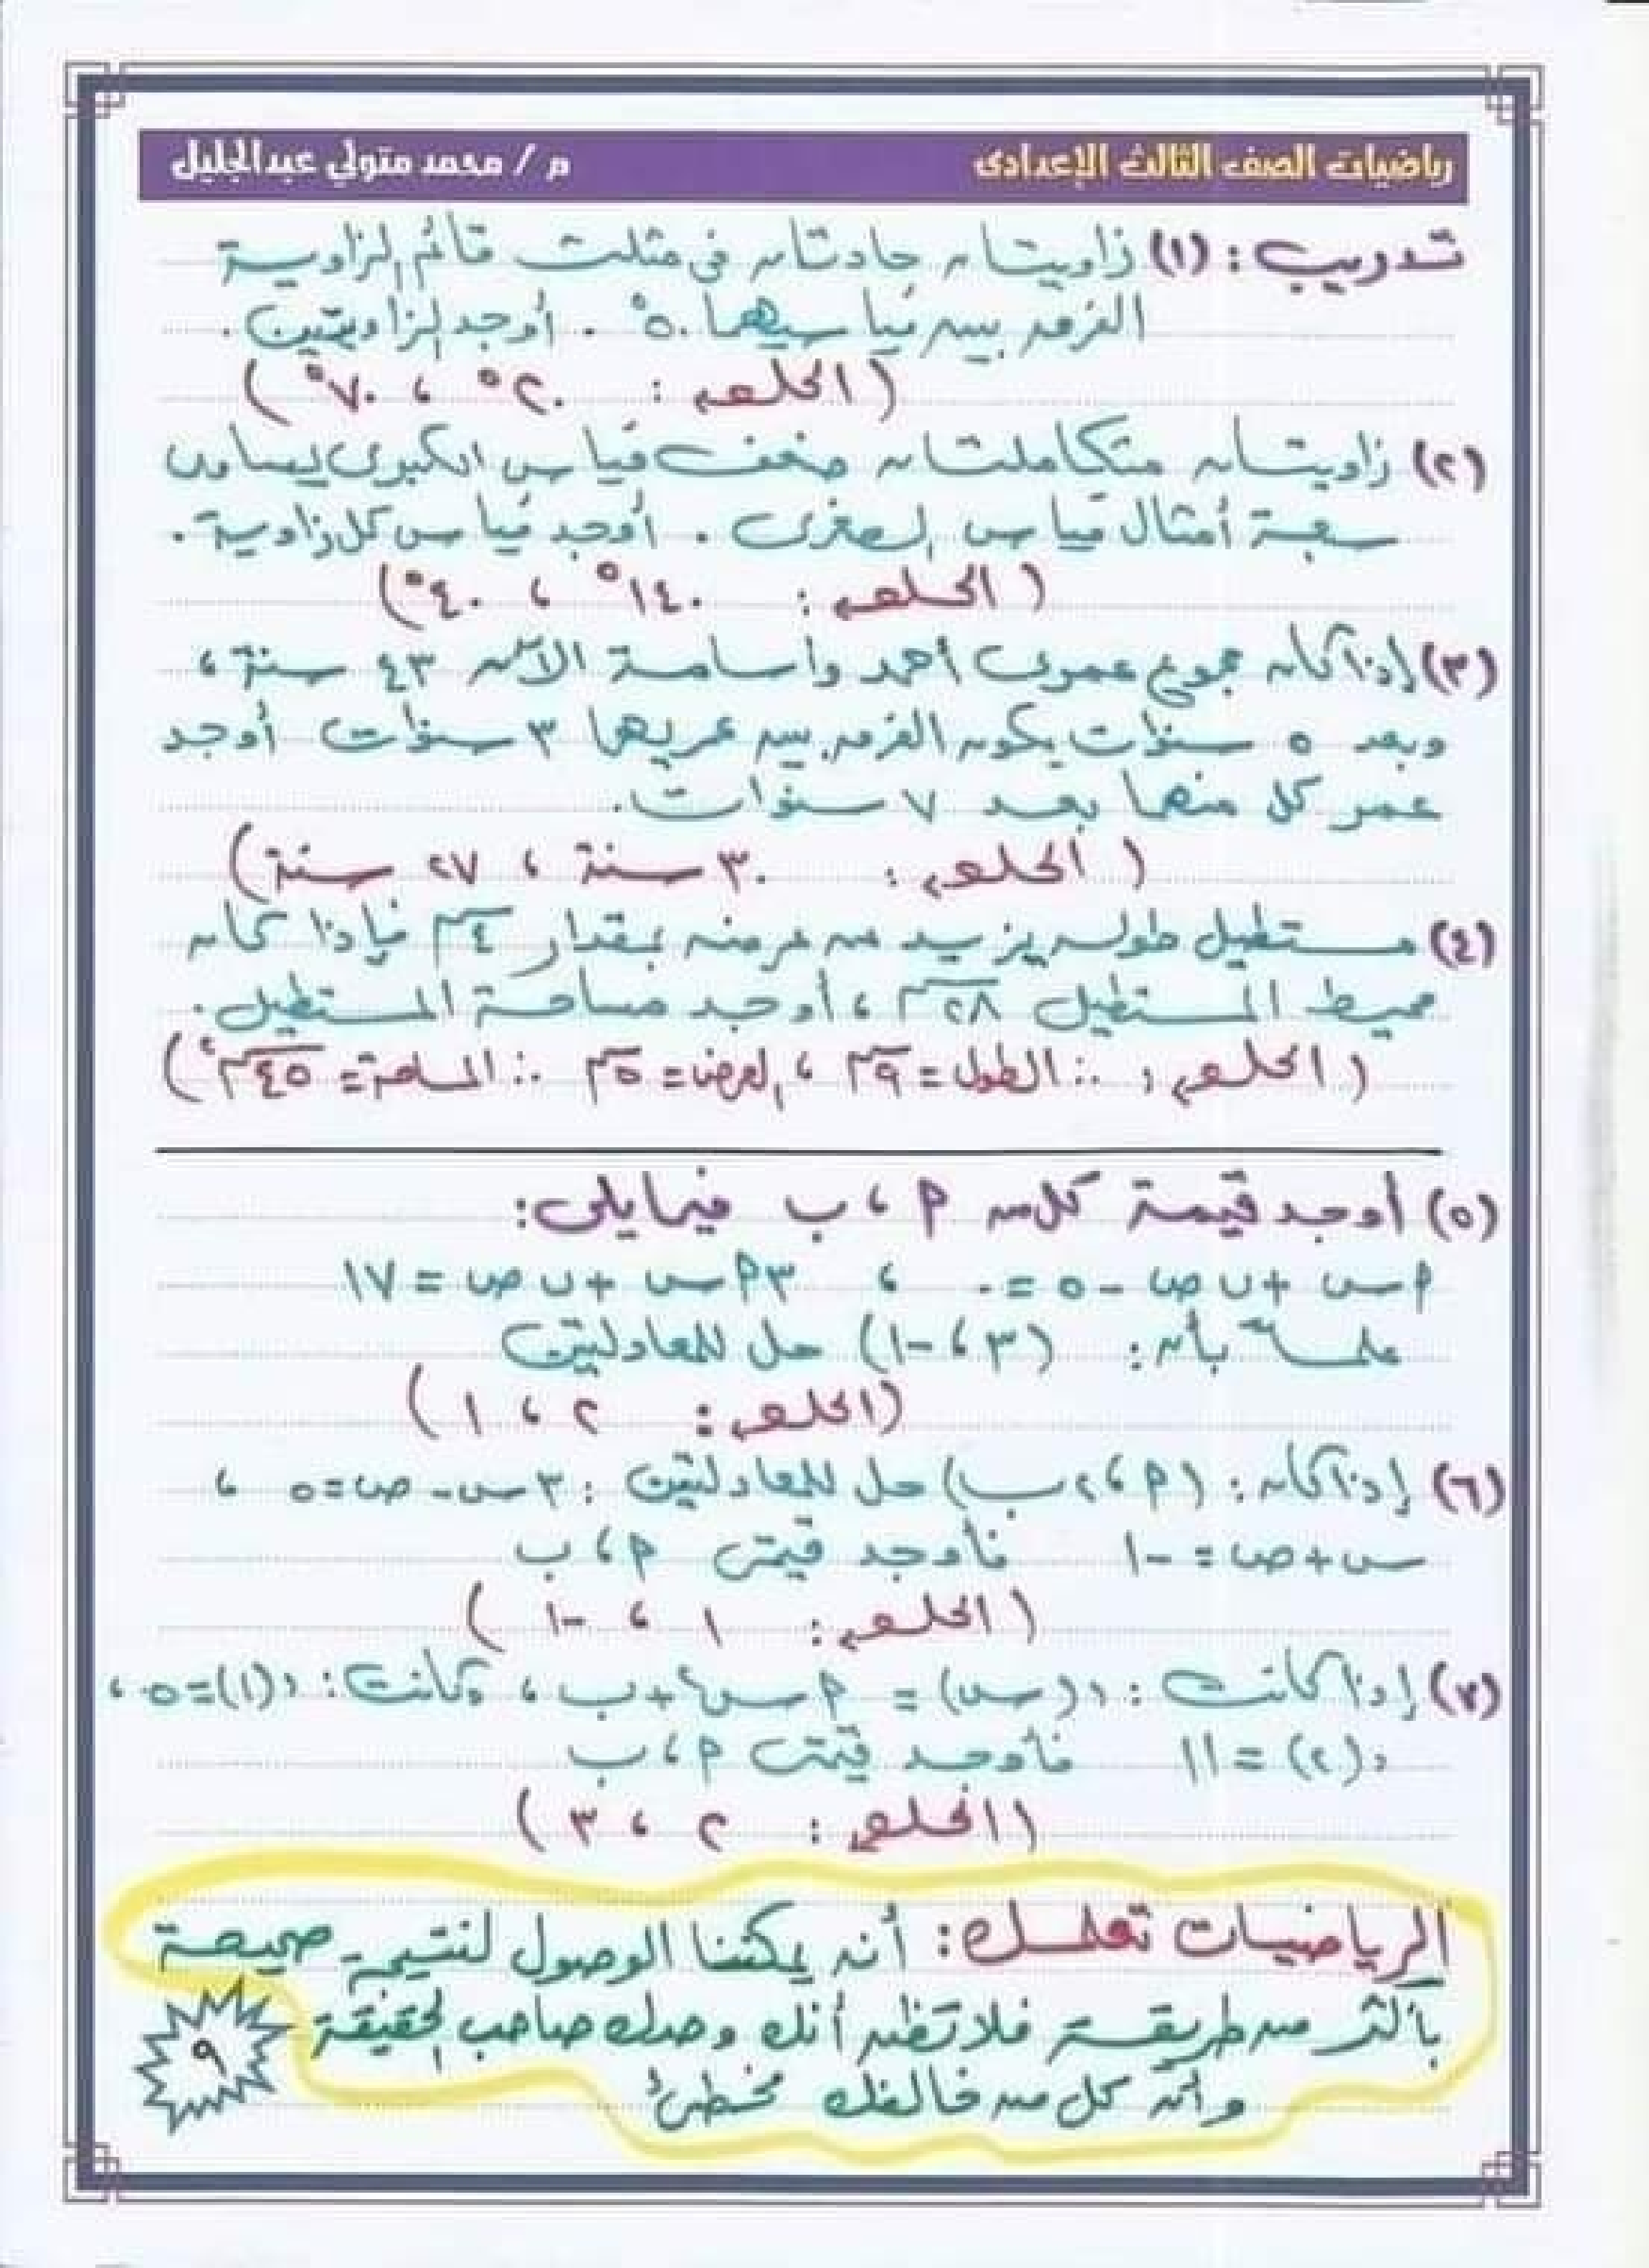 رياضيات الصف الثالث الإعدادى م / محمد متولي عبدالجليل
تدريب : (١) زاويتان حادتان فى مثلث قائم الزاوية
الفرق بين قياسيهما ٥٠° . أوجد الزاويتين .
( الحل هو : ٢٠° ، ٧٠° )
(٢) زاويتان متكاملتان ضعف قياس الكبرى يساوى
سبعة أمثال قياس الصغرى . أوجد قياس كل زاوية .
( الحل هو : ١٤٠° ، ٤٠° )
(٣) إذا كان مجموع عمرى أحمد وأسامة الآن ٤٣ سنة ،
وبعد ٥ سنوات يكون الفرق بين عمريهما ٣ سنوات أوجد
عمر كل منهما بعد ٧ سنوات .
( الحل هو : ٣٠ سنة ، ٢٧ سنة )
(٤) مستطيل طوله يزيد عن عرضه بمقدار ٤ سم فإذا كان
محيط المستطيل ٢٨ سم ، أوجد مساحة المستطيل .
( الحل هو : ∴ الطول = ٩ سم ، العرض = ٥ سم ∴ المساحة = ٤٥ سم٢ )
(٥) أوجد قيمة كل من م ، ب فيما يلى :
م س + ب ص - ٥ = ٠ ، ٣ م س + ب ص = ١٧
علماً بأن : (٣ ، -١) حل للمعادلتين
(الحل هو : ٢ ، ١ )
(٦) إذا كان : (م ، ٢ب) حل للمعادلتين : ٣س - ص = ٥ ،
س + ص = -١ فأوجد قيمتى م ، ب
( الحل هو : ١ ، -١ )
(٧) إذا كانت : د(س) = م س٢ + ب ، وكانت : د(١) = ٥ ،
د(٢) = ١١ فأوجد قيمتى م ، ب
( الحل هو : ٢ ، ٣ )
الرياضيات تعلمك : أنه يمكننا الوصول لنتيجة صحيحة
بأكثر من طريقة فلا تظن أنك وحدك صاحب الحقيقة
وأن كل من خالفك مخطئ
٩